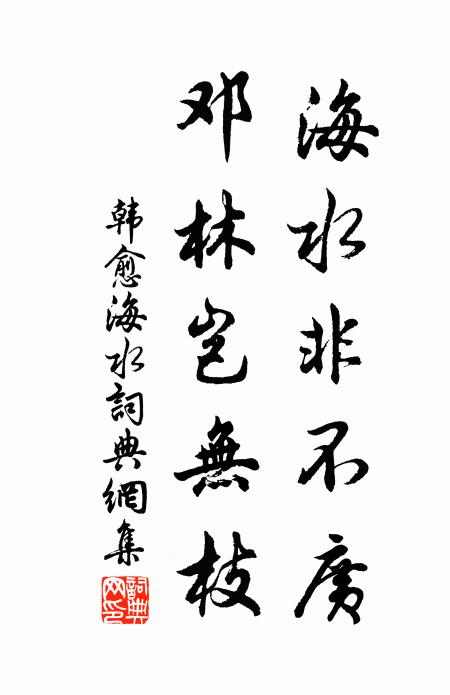 海水非不廣
邓林岂無枝
韩愈海水詞典網集
詞典网印